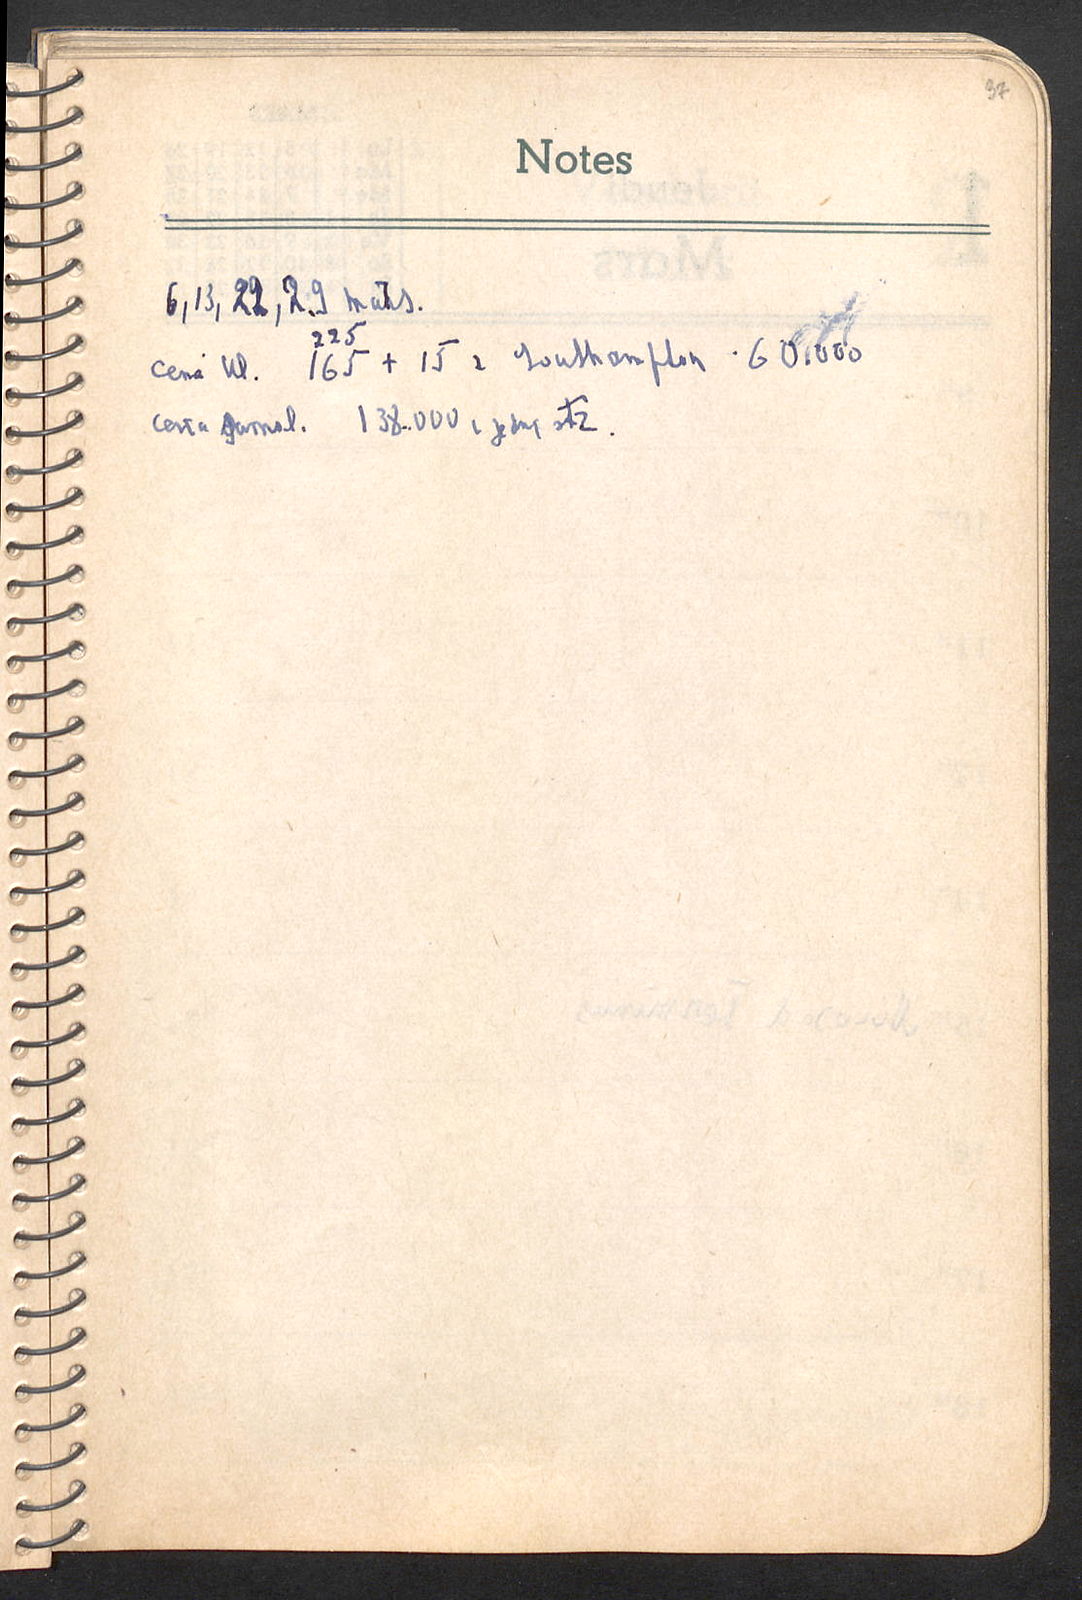 97
Notes
6, 13, 22, 29 mars.
225
cena kl. 165 + 15 z Southampton 60.000
cena 138.000